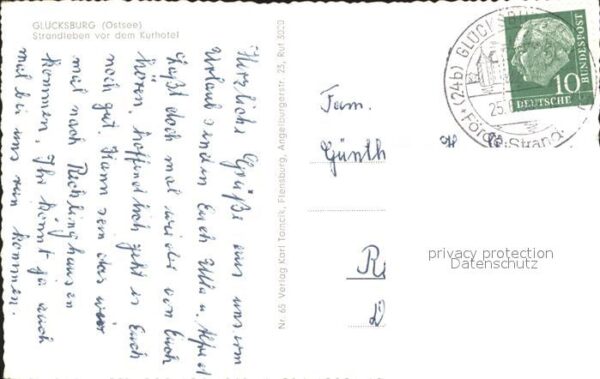 GLÜCKSBURG (Ostsee)
Strandleben vor dem Kurhotel
Herzliche Grüße aus unserm
Urlaub senden Euch Ulla u. Alfred
Laßt doch mal wieder von Euch
hören, hoffentlich geht es Euch
noch gut. Kann sein das wir
mal nach Recklinghausen
kommen. Ihr könnt ja auch
mal bei uns rein kommen.
Nr. 65 Verlag Karl Tomcik, Flensburg, Angelburgerstr. 25, Ruf 5020
Fam.
Günth
R
(24b) GLÜCKSBU
25.
Förde-Strand
10
DEUTSCHE BUNDESPOST
privacy protection
Datenschutz